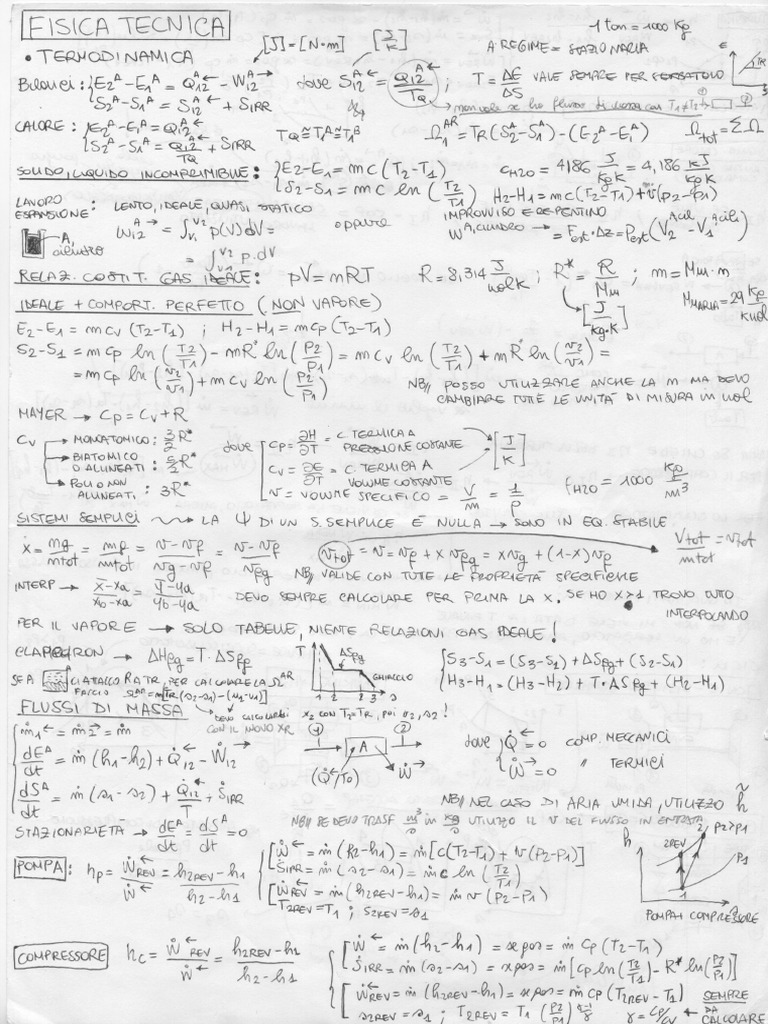 FISICA TECNICA
• TERMODINAMICA
[J]=[N·m] [J/K]
1 ton = 1000 Kg
A REGIME = STAZIONARIA
Bilanci: {E2^A − E1^A = Q12^A← − W12^A→
S2^A − S1^A = S12^A← + SIRR
dove S12^A← = Q12^A←/TQ ; T = ΔE/ΔS VALE SEMPRE PER SERBATOIO
CALORE: {E2^A − E1^A = Q12←
S2^A − S1^A = Q12^A←/TQ + SIRR
TQ ≅ T1^A ≅ T1^B
Ω1^AR = TR(S2^A − S1^A) − (E2^A − E1^A) Ωtot = ΣΩ
SOLIDO, LIQUIDO INCOMPRIMIBILE: {E2−E1 = mc(T2−T1)
S2−S1 = mc ln(T2/T1)
cH2O = 4186 J/kg·K = 4,186 kJ/kg·K
H2−H1 = mc(T2−T1) + v(p2−p1)
LAVORO ESPANSIONE: LENTO, IDEALE, QUASI STATICO
W12^A→ = ∫V1^V2 p(V)dV =
= ∫V1^V2 p·dV
oppure
IMPROVVISO E REPENTINO
W^A,CILINDRO→ = Fext·Δz = Pext(V2^A,cil − V1^A,cil)
A, cilindro
RELAZ. COSTIT. GAS IDEALE: pV = mRT R = 8,314 J/mol K ; R* = R/Mm ; m = Mm·n
[J/kg·K]
MmARIA = 29 kg/kmol
IDEALE + COMPORT. PERFETTO (NON VAPORE)
E2−E1 = mcv(T2−T1) ; H2−H1 = mcp(T2−T1)
S2−S1 = mcp ln(T2/T1) − mR* ln(P2/P1) = mcv ln(T2/T1) + mR* ln(v2/v1) =
= mcp ln(v2/v1) + mcv ln(P2/P1)
NB// POSSO UTILIZZARE ANCHE LA n MA DEVO
CAMBIARE TUTTE LE UNITÀ DI MISURA in mol
MAYER → cp = cv + R
cv → MONOATOMICO: 3/2 R*
→ BIATOMICO O ALLINEATI: 5/2 R*
→ POLI O NON ALLINEATI: 3R*
dove [cp = ∂H/∂T = C TERMICA A PRESSIONE COSTANTE
cv = ∂E/∂T = C TERMICA A VOLUME COSTANTE
v = VOLUME SPECIFICO = V/m = 1/ρ
[J/K]
ρH2O = 1000 kg/m³
SISTEMI SEMPLICI → LA Ψ DI UN S. SEMPLICE È NULLA → SONO IN EQ. STABILE
x = mg/mtot = (v−vf)/(vg−vf) = (v−vf)/vfg
vtot = v = vf + x vfg = x vg + (1−x)vf
Vtot/mtot = vtot
NB// VALIDE CON TUTTE LE PROPRIETÀ SPECIFICHE
INTERP → (x−xa)/(xb−xa) = (y−ya)/(yb−ya)
DEVO SEMPRE CALCOLARE PER PRIMA LA x. SE HO x>1 TROVO TUTTO
INTERPOLANDO
PER IL VAPORE → SOLO TABELLE, NIENTE RELAZIONI GAS IDEALE!
CLAPEYRON → ΔHfg = T·ΔSfg
T ΔSfg GHIACCIO
1 2 2 3 s
{S3−S1 = (S3−S2) + ΔSfg + (S2−S1)
H3−H1 = (H3−H2) + T·ΔSfg + (H2−H1)
SE A
DEVO CALCOLARMI x2 CON T2=TR, poi u2, s2!
FLUSSI DI MASSA
{ṁ1← = ṁ2→ = ṁ
dE^A/dt = ṁ(h1−h2) + Q̇12← − Ẇ12→
dS^A/dt = ṁ(s1−s2) + Q̇12←/T + ṠIRR
STAZIONARIETÀ → dE^A/dt = dS^A/dt = 0
① A ②
(Q̇←/TQ) Ẇ→
dove {Q̇ = 0 COMP. MECCANICI
Ẇ = 0 " TERMICI
NB// NEL CASO DI ARIA UMIDA, UTILIZZO h̃
NB// SE DEVO TRASF m³/s in kg/s UTILIZZO IL v DEL FLUSSO IN ENTRATA
POMPA: ηp = ẆREV←/Ẇ← = (h2REV−h1)/(h2−h1)
[Ẇ← = ṁ(h2−h1) = ṁ[c(T2−T1) + v(P2−P1)]
ṠIRR = ṁ(s2−s1) = ṁc ln(T2/T1)
[ẆREV← = ṁ(h2REV−h1) = ṁv(P2−P1)
T2REV = T1 ; s2REV = s1
h 2REV 2 P2>P1 P1 1
POMPA+COMPRESSORE
COMPRESSORE ηc = ẆREV←/Ẇ← = (h2REV−h1)/(h2−h1)
[Ẇ← = ṁ(h2−h1) = se gas = ṁcp(T2−T1)
ṠIRR = ṁ(s2−s1) = se gas = ṁ[cp ln(T2/T1) − R* ln(P2/P1)]
[ẆREV← = ṁ(h2REV−h1) = se gas = ṁcp(T2REV−T1)
s2REV = s1 ; T2REV = T1(P2/P1)^((γ−1)/γ) γ = cp/cv ← SEMPRE DA CALCOLARE